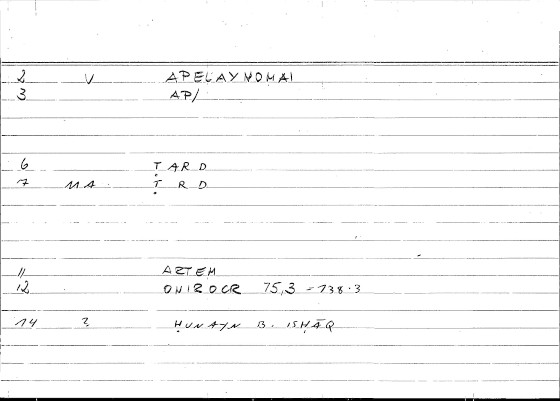 2 V APELAYNOMAI
3 AP/
6 ṬARD
7 MA. Ṭ R D
11 ARTEM
12 ONIROCR 75,3 - 138.3
14 3 ḤUNAYN B. ISḤĀQ